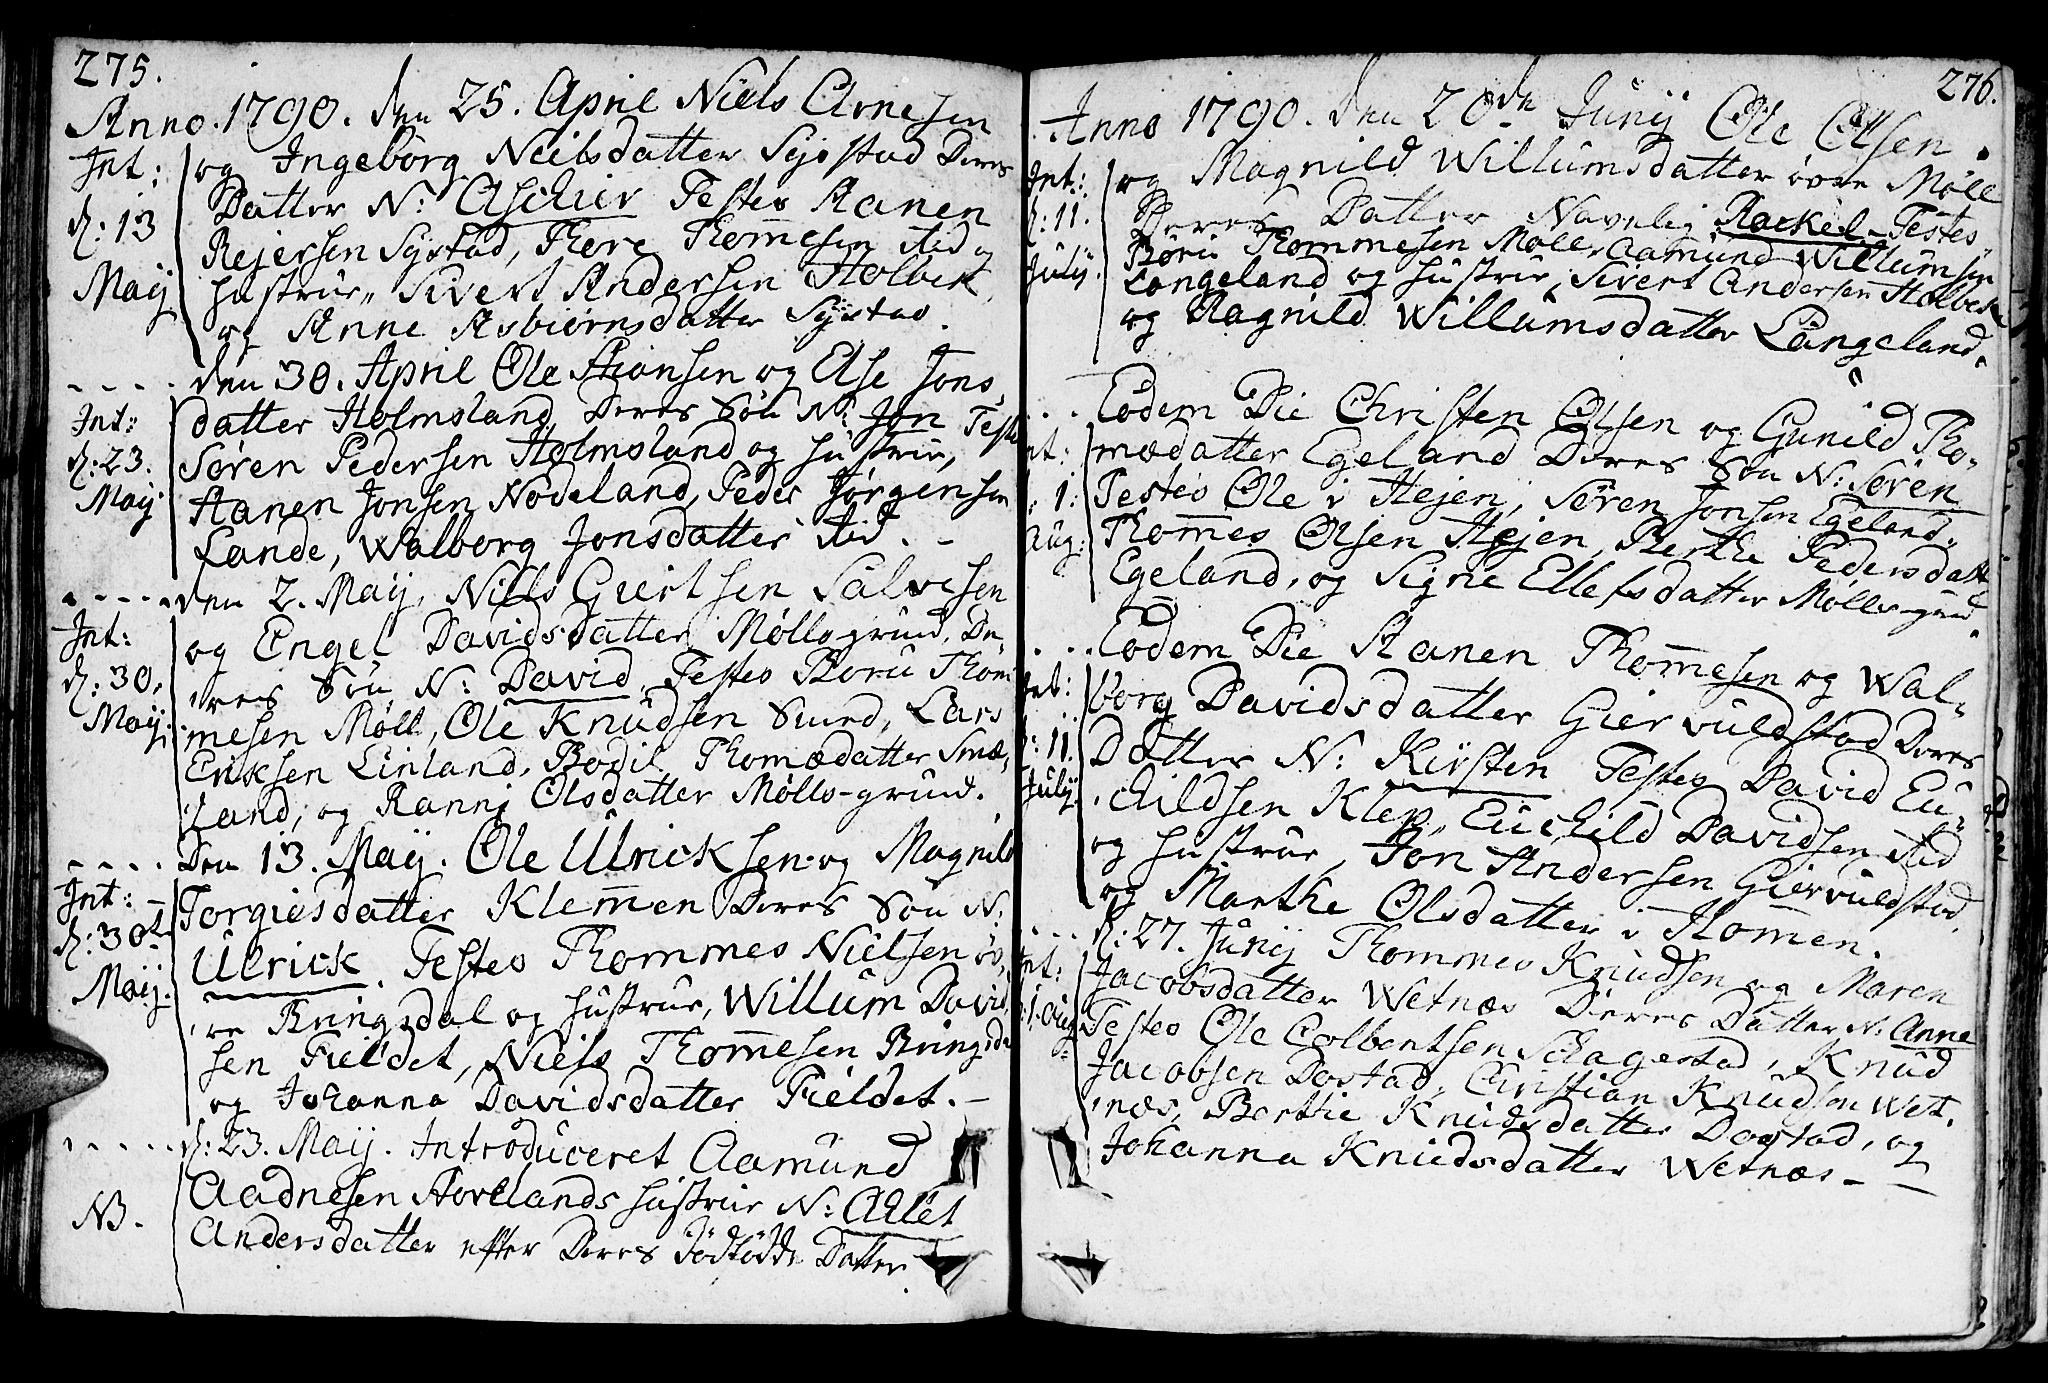 275.
Anno. 1790. den 25. April Niels Arnesen
Int: og Ingebörg Neilsdatter Syvstad Deres
Datter N: Aschier Testes Aanen
d: 13 Rejersen Systad, Thore Thomesen sted og
Maij hustrue, Sivert Andersen Holbek
og Anne Asbiörnsdatter Systad.
den 30. April Ole Hansen og Else Jons
Int: datter Holmsland Deres Sön N: Jon Teste
d: 23. Sören Pedersen Holmsland og hustrue,
Maij Aanen Jonsen Nodeland, Peder Jörgensen
Lande, Walborg Jonsdatter sted. -
den 2. Maij, Niels Giertsen Salvesen
Int: og Engel Davidsdatter Mölls-grund, De
d: 30. res Sön N: David, Testes Boru Thom
Maij. mesen Möll, Ole Knudsen Lars
Eriksen Linland, Bodil Thomædatter Smæ,
land, og Ranni Olsdatter Mölls-grund.
Den 13. Maij. Ole Ulricksen og Magnild
Int: Torgiesdatter Klemmen Deres Sön N:
d: 30t Ulrick. Testes Thommes Nielsen öv,
Maij. re Bringsdal og hustrue, Willum David
sen Fieldet, Niels Thommesen Bringsda
og Johanna Davidsdatter Fieldet. -
d: 23. Maij. Introduceret Aamund
NB. Aadnesen Hovelands hustrue N: Adlet
Andersdatter efter Deres dödfödde Datter
276.
Anno 1790. den 20de Junij Ole Olsen
Int: og Magnild Willumsdatter övre Möll
d: 11. Deres Datter Navnlig Rackel Testes
Julij. Böru Thommesen Möll, Aamund Willumsen
Langeland og hustrue, Sivert Andersen Holbek
og Ragnild Willumsdatter Langeland.
Eodem Die Christen Olsen og Gunild Tho-
nt: mædatter Egeland Deres Sön N: Sören
1: Testes Ole i Hejen, Sören Jonsen Egeland,
Aug: Thommes Olsen Hejen, Berthe Pedersdatt
Egeland, og Signe Ellefsdatter Mölls-grund
Eodem Die Aanen Thommesen og Wal-
Int: borg Davidsdatter Giervuldstad Deres
d: 11. Datter N: Kirsten Testes David Eu-
Julij. childsen Klep, Euchild Davidsen sted
og hustrue, Jon Andersen Giervuldstad
og Marthe Olsdatter i Homen.
d: 27. Junij Thommes Knudsen og Maren
Int: Jacobsdatter Wetnæs Deres Datter N: Anne
1. Aug Testes Ole Colbentsen Schagestad, Knud
Jacobsen Dostad, Christian Knudsen Wet,
næs, Berthe Knudsdatter Dostad, og
Johanna Knudsdatter Wetnæs -